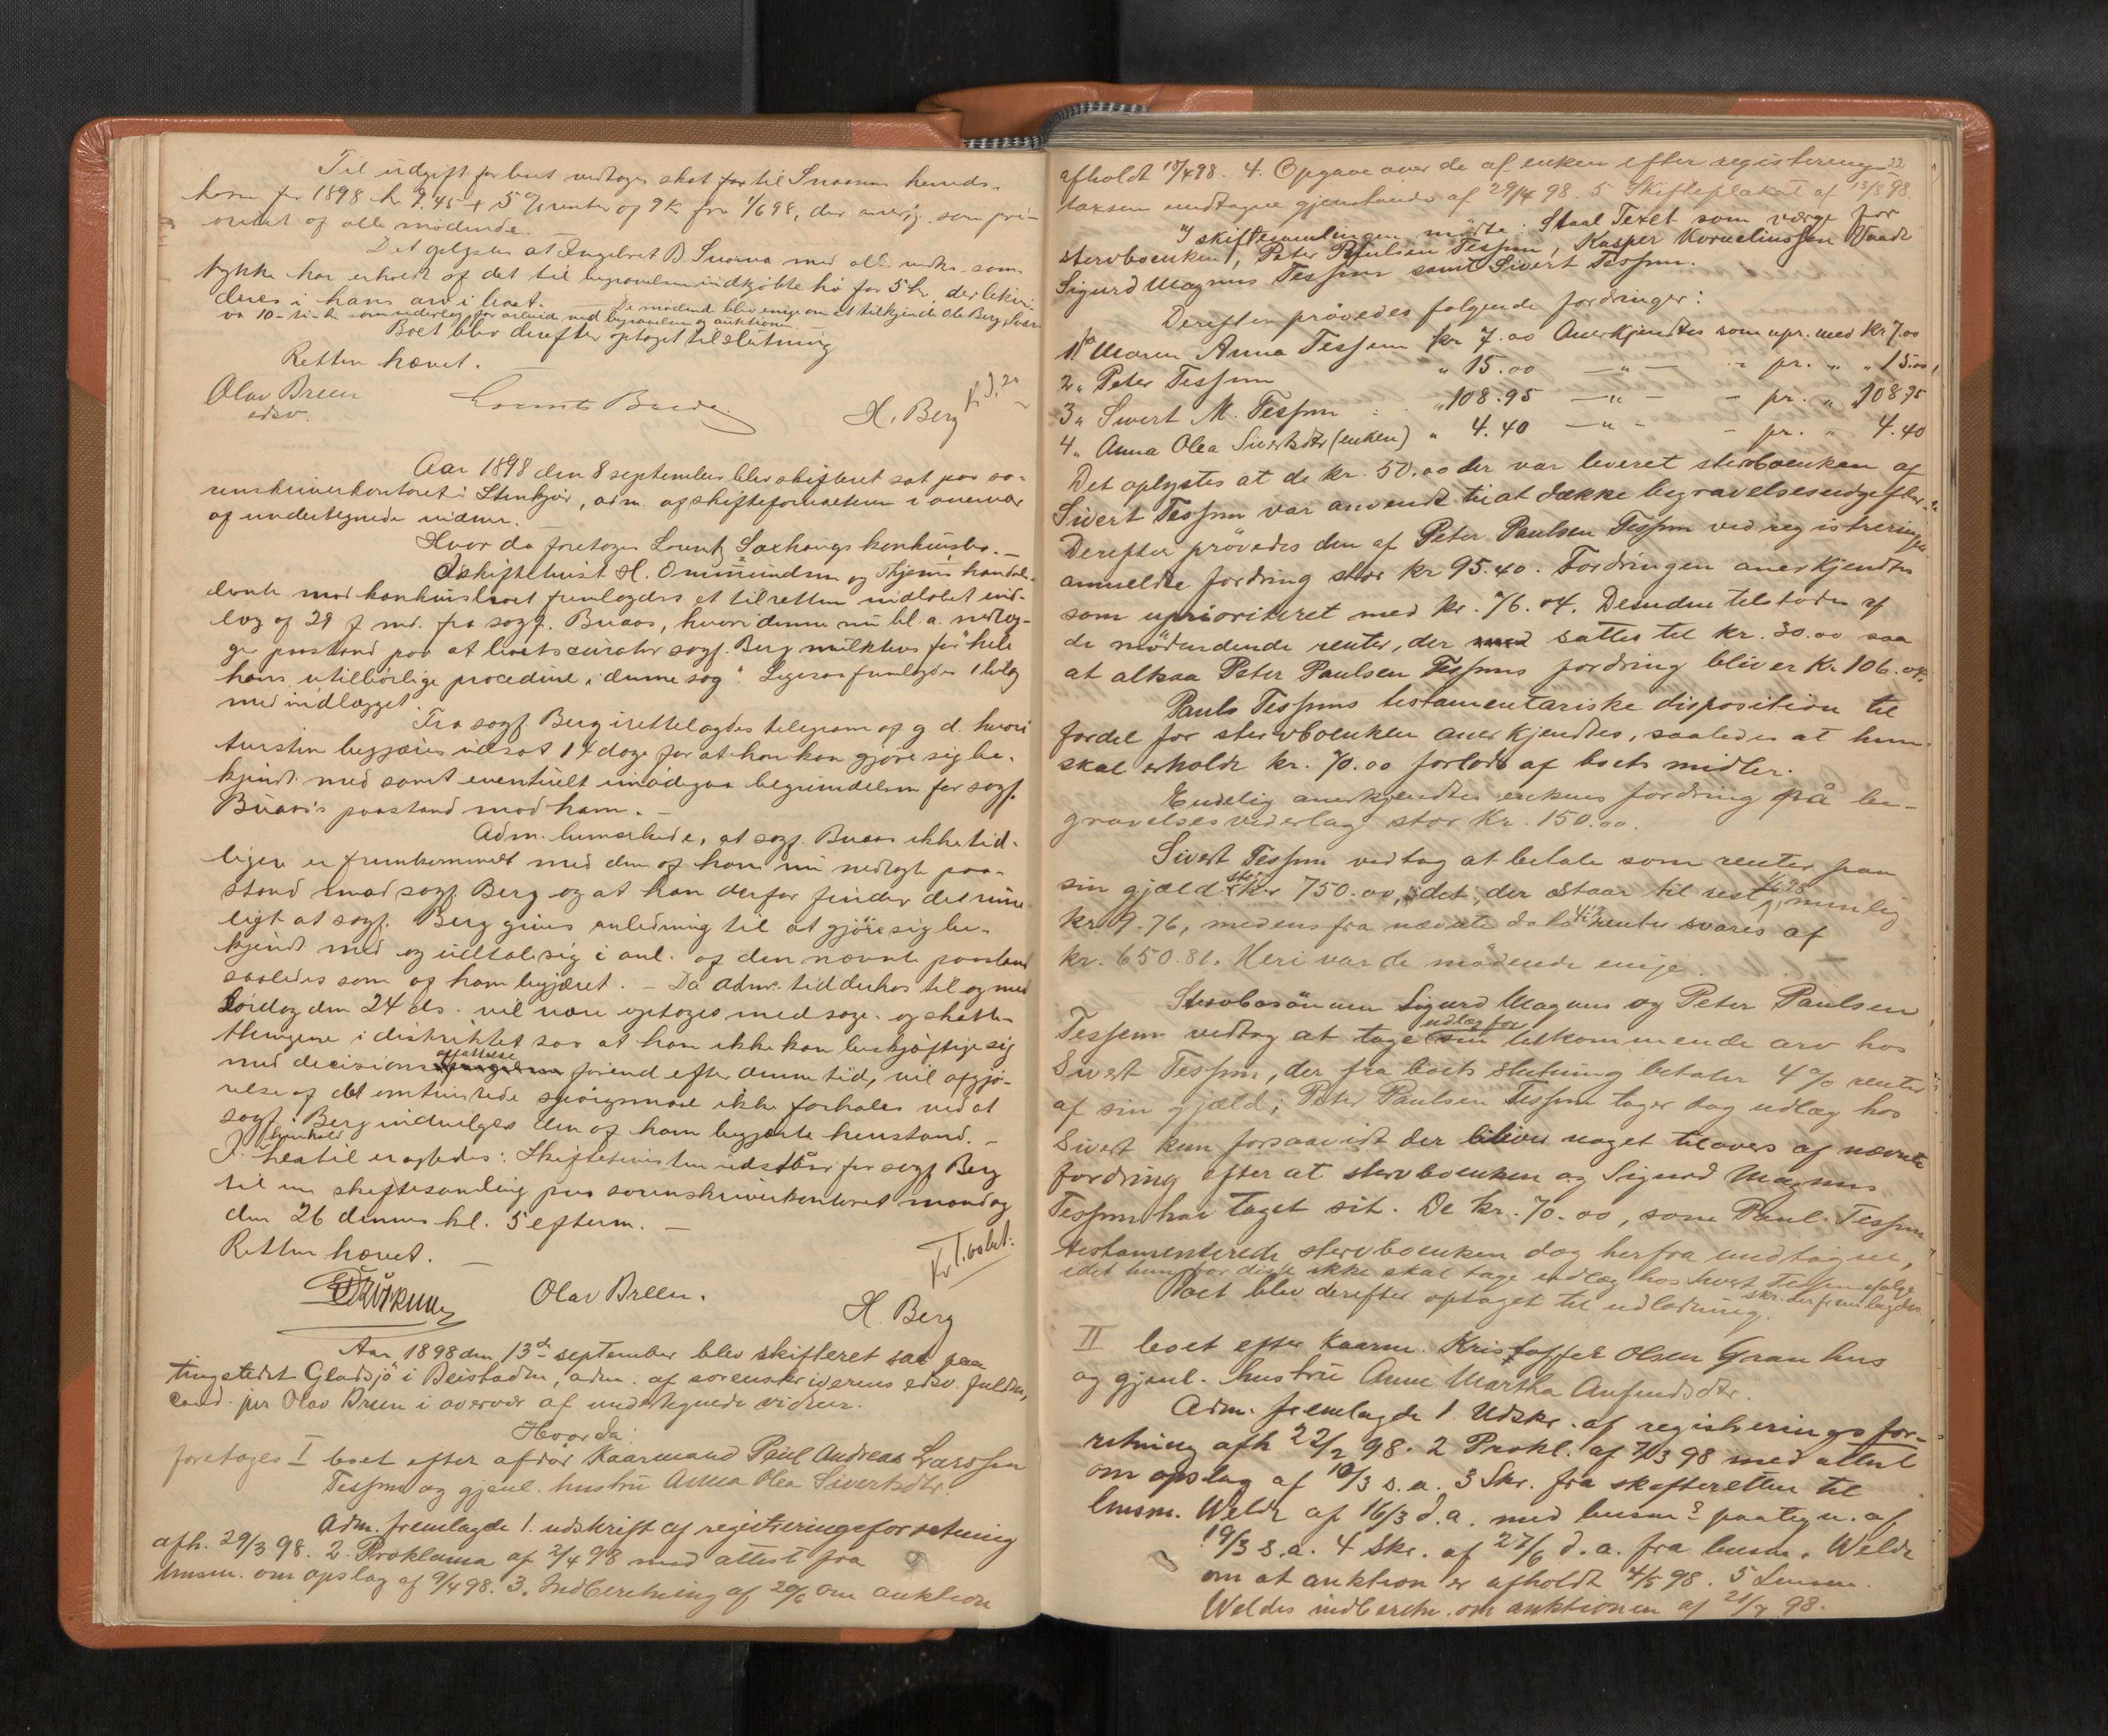 Til udgift for boet vedtoges skat for til Snaasens hereds-
kasse for 1898 kr 9.45 + 5 % renter og 9 kr fra 1/6 98, der anerkj. som pri-
oritet af alle mødende.
Det oplystes at Ingebret B. Snaasa med alles
tykke har erholdt af det til begravelsen indkjøbte hø for 5 kr, der
deres i hans arv i boet. De mødende blev enige om at tilkjende Ole Berg
10-ti-kr som vederlag for arbeide ved begravelsen og auktionen
Boet blev derefter optaget til slutning
Retten hævet.
Olav Breen
edsv.
H. Berg
Aar 1898 den 8 september blev skifteret sat paa so-
renskriverkontoret i Stenkjær, adm. af skifteforvalteren i overvær
af undertegnede vidner.
Hvor da foretoges Lorentz Saxhaugs konkursbo. —
I skiftetvist H. Ommundsen og Thjems handels-
mod konkursboet fremlagdes et til retten indløbet ind-
læg af 29 f. md. fra sagf. Buaas, hvori denne nu bl. a. nedlæg-
ger paastand paa at boets curator sagf. Berg mulkteres for "hele
hans utilbørlige procedure i denne sag". Ligesaa fremlagdes 1 bilag
med indlægget.
Fra sagf. Berg irettelagdes telegram af g. d. hvori
begjæres udsat 14 dage for at han kan gjøre sig be-
kjendt med samt eventuelt imødegaa begrundelsen for sagf.
Buaas's paastand mod ham. —
Adm. bemærkede, at sagf. Buaas ikke tid-
ligere er fremkommet med den af ham nu nedlagte paa-
stand mod sagf. Berg og at han derfor finder det rime-
ligt at sagf. Berg gives anledning til at gjøre sig be-
kjendt med og udtale sig i anl. af den nævnte paastand
saaledes som af ham begjæret. – Da adms. tid derhos til og med
Lørdag den 24 ds. vil være optaget med sage- og skatte-
thingene i distriktet saa at han ikke kan beskjæftige sig
med decisions affattelse førend efter denne tid, vil afgjø-
relse af det omtvistede spørgsmaal ikke forhales ved at
sagf. Berg indvilges den af ham begjærte henstand. –
I henhold hertil eragtedes: Skiftetvisten udstaar for sagf. Berg
til en skiftesamling paa sorenskriverkontoret mandag
den 26 dennes kl. 5 efterm. —
Retten hævet. —
Olav Breen.
H. Berg
Aar 1898 den 13de september blev skifteret sat paa
tingstedet Gladsjø i Beistaden, adm. af sorenskriverens edsv. fuldm,
cand. jur Olav Breen i overvær af undertegnede vidner.
Hvorda
foretoges I boet efter afdør Kaarmand Paul Andreas Larssen
Tessem og gjenl. hustru Anna Olea Sivertsdtr.
Adm. fremlagde 1. udskrift af registreringsforretning
afh. 29/3 98. 2. Proklama af 2/4 98 med attest fra
lensm. om opslag af 9/4 98. 3. Indberetning af 20/6 om auktion
22
afholdt 18/4 98. 4. Opgave over de af enken efter registrerings-
taxsen undtagne gjenstande af 29/4 98. 5 Skifteplakat af 13/8 98.
I skiftesamlingen mødte: Staal Texet som værge for
stervboenken, Peter Paulsen Tessem, Kasper Korneliussen Vaade
Sigurd Magnus Tessem samt Sivert Tessem.
Derefter prøvedes følgende fordringer:
1. fra Maren Anna Tessem kr 7.00 Anerkjendtes som upr. med kr 7.00
2 " Peter Tessem " 15.00 —"— – pr. " " 15.00
3 " Sivert M. Tessem " 108.95 —"— – pr. " 108.95
4 " Anna Olea Sivertsdtr (enken) " 4.40 —"— – pr. " 4.40
Det oplystes at de kr. 50.00 der var leveret stervboenken af
Sivert Tessem var anvendt til at dække begravelsesudgifter.
Derefter prøvedes den af Peter Paulsen Tessem ved registreringen
anmeldte fordring stor kr 95.40. Fordringen anerkjendtes
som uprioriteret med kr. 76.04. Desuden tilstodes af
de mødendende renter, der med sattes til kr. 30.00 saa
at altsaa Peter Paulsen Tessems fordring bliver kr. 106.04.
Pauls Tessems testamentariske disposition til
fordel for stervboenken anerkjendtes, saaledes at hun
skal erholde kr. 70.00 forlods af boets midler.
Endelig anerkjendtes enkens fordring på be-
gravelsesvederlag stor kr. 150.00.
Sivert Tessem vedtog at betale som renter paa
sin gjæld stor kr 750.00, idet der staar til rest 1/6 98, nemlig
kr. 9.76, medens fra nævnte dato 4% rente svares af
kr. 650.81. Heri var de mødende enige.
Stervbosønnen Sigurd Magnus og Peter Paulsen
Tessem vedtog at tage udlæg for sin tilkommende arv hos
Sivert Tessem, der fra boets slutning betaler 4 % renter
af sin gjæld; Peter Paulsen Tessem tager dog udlæg hos
Sivert kun forsaavidt der bliver noget tilovers af nævnte
fordring efter at stervboenken og Sigurd Magnus
Tessem har taget sit. De kr. 70.00, som Paul Tessem
testamenterede stervboenken dog herfra undtagne,
idet hun for disse ikke skal tage udlæg hos Sivert Tessem ifølge
skr. der fremlagdes
Boet blev derefter optaget til udlodning.
II boet efter kaarm. Kristoffer Olsen Granhus
og gjenl. hustru Anne Martha Anfindsdtr.
Adm. fremlagde 1. Udskr. af registreringsfor-
retning afh 22/2 98. 2 Prokl. af 7/3 98 med attest
om opslag af 10/3 s.a. 3 Skr. fra skifteretten til
lensm. Welde af 16/3 d.a. med lensm.s paategn. af
19/3 s.a. 4 Skr. af 27/6 d.a. fra lensm. Welde
om at auktion er afholdt 4/5 98. 5 Lensm.
Weldes indberetn. om auktionen af 21/7 98.